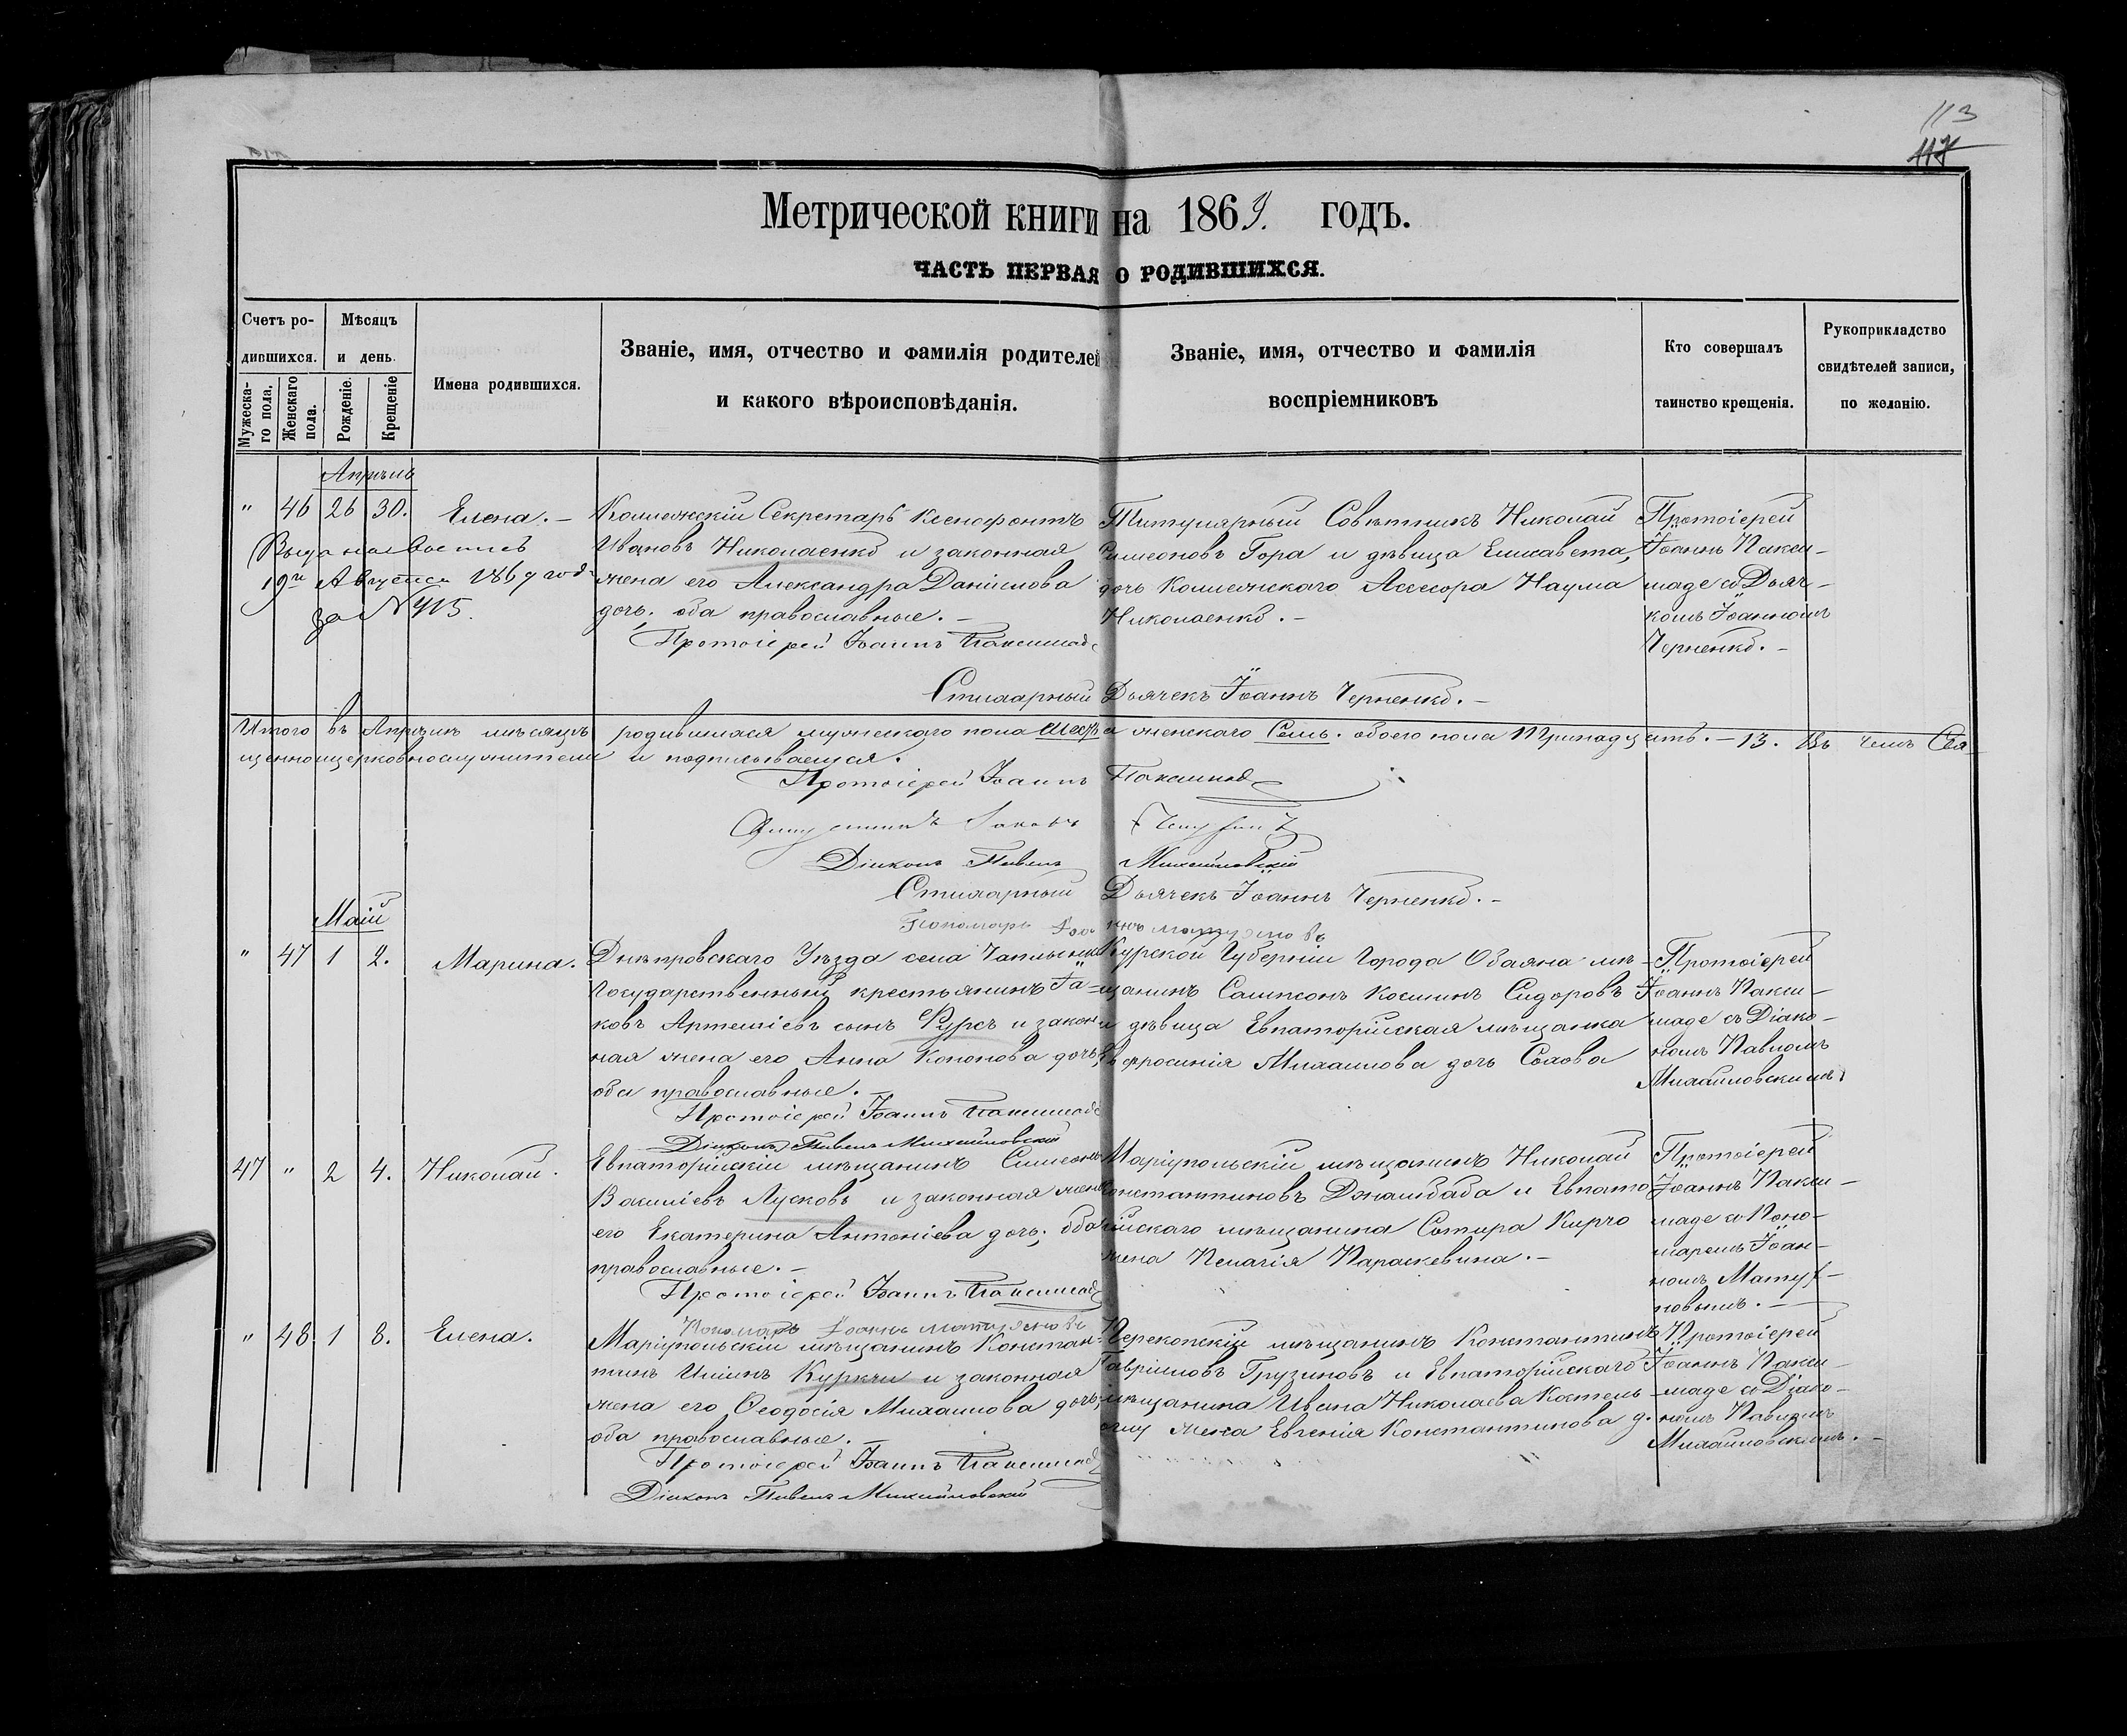 113
117
Метрической книги на 1869. годъ.
ЧАСТЬ ПЕРВАЯ О РОДИВШИХСЯ.
Счетъ ро-
дившихся.
Мужеска-
го пола.
Женскаго
пола.
Мѣсяцъ
и день.
Рожденіе.
Крещеніе
Имена родившихся.
Званіе, имя, отчество и фамилія родителей
и какого вѣроисповѣданія.
Званіе, имя, отчество и фамилія
воспріемниковъ
Кто совершалъ
таинство крещенія.
Рукоприкладство
свидѣтелей записи,
по желанію.
Апрѣль
" 46 26 30. Елена. –
19го Августа 1869 года
за № 415.
Коллежскій Секретарь Ксенофонтъ
Ивановъ Николаенко и законная
жена его Александра Даніилова
дочь; оба православные. –
Протоіерей Іоаннъ Пакси
Титулярный Совѣтникъ Николай
Симеоновъ Гора и дѣвица Елисавета,
дочь Коллежскаго Ассесора Наума
Николаенко. –
Протоіерей
Іоаннъ Пакси-
маде съ Дьяч-
комъ Іоанномъ
Черненко. –
Стихарный Дьячекъ Іоаннъ Черненко. –
Итого въ Апрѣлѣ мѣсяцѣ родившихся мужескаго пола шесть а женскаго Семь. обоего пола Тринадцать. – 13. Въ чемъ Свя
щенноцерковнослужители и подписываемся.
Протоіерей Іоаннъ
Діаконъ Павелъ Михайловскій
Стихарный Дьячекъ Іоаннъ Черненко. –
Пономарь Іоаннъ
Маій
" 47 1 2. Марина.
Днѣпровскаго Уѣзда села Чаплынки
Государственный крестьянинъ Іа-
ковъ Артеміевъ сынъ Фурсъ и закон
ная жена его Анна Кононова дочь,
оба православные. –
Протоіерей Іоаннъ
Діаконъ Павелъ Михайловскій
Курской Губерніи Города Обаяна мѣ-
щанинъ Сампсонъ Косминъ Сидоровъ
и дѣвица Евпаторійская мѣщанка
Евфросинія Михаилова дочь Сохова
Протоіерей
Іоаннъ Пакси-
маде съ Діако-
номъ Павломъ
Михайловскимъ.
47 " 2 4. Николай.
Евпаторійскій мѣщанинъ Симеонъ
Василіевъ Лусковъ и законная жена
его Екатерина Антоніева дочь; оба
православные. –
Протоіерей Іоаннъ
Пономарь Іоаннъ
Маріупольскій мѣщанинъ Николай
Константиновъ Джамбаба и Евпато
рійскаго мѣщанина Сотира Кирчо
жена Пелагія Параскевина. –
Протоіерей
Іоаннъ Пакси-
маде съ Поно-
маремъ Іоан-
номъ
" 48. 1 8. Елена.
Маріупольскій мѣщанинъ Констан-
тинъ Ильинъ Куркчи и законная
жена его Ѳеодосія Михаилова дочь;
оба православные. –
Протоіерей Іоаннъ
Діаконъ Павелъ Михайловскій
Перекопскій мѣщанинъ Константинъ
Гавріиловъ Грузиновъ и Евпаторійскаго
мѣщанина Ивана Николаева
жена Евгенія Константинова д.
Протоіерей
Іоаннъ Пакси-
маде съ Діако-
номъ Павломъ
Михайловскимъ. –